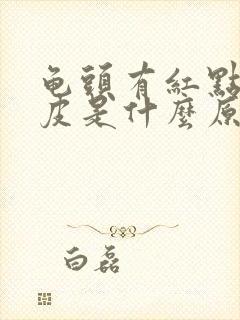 龟頭有紅點
皮是什麼原
白磊